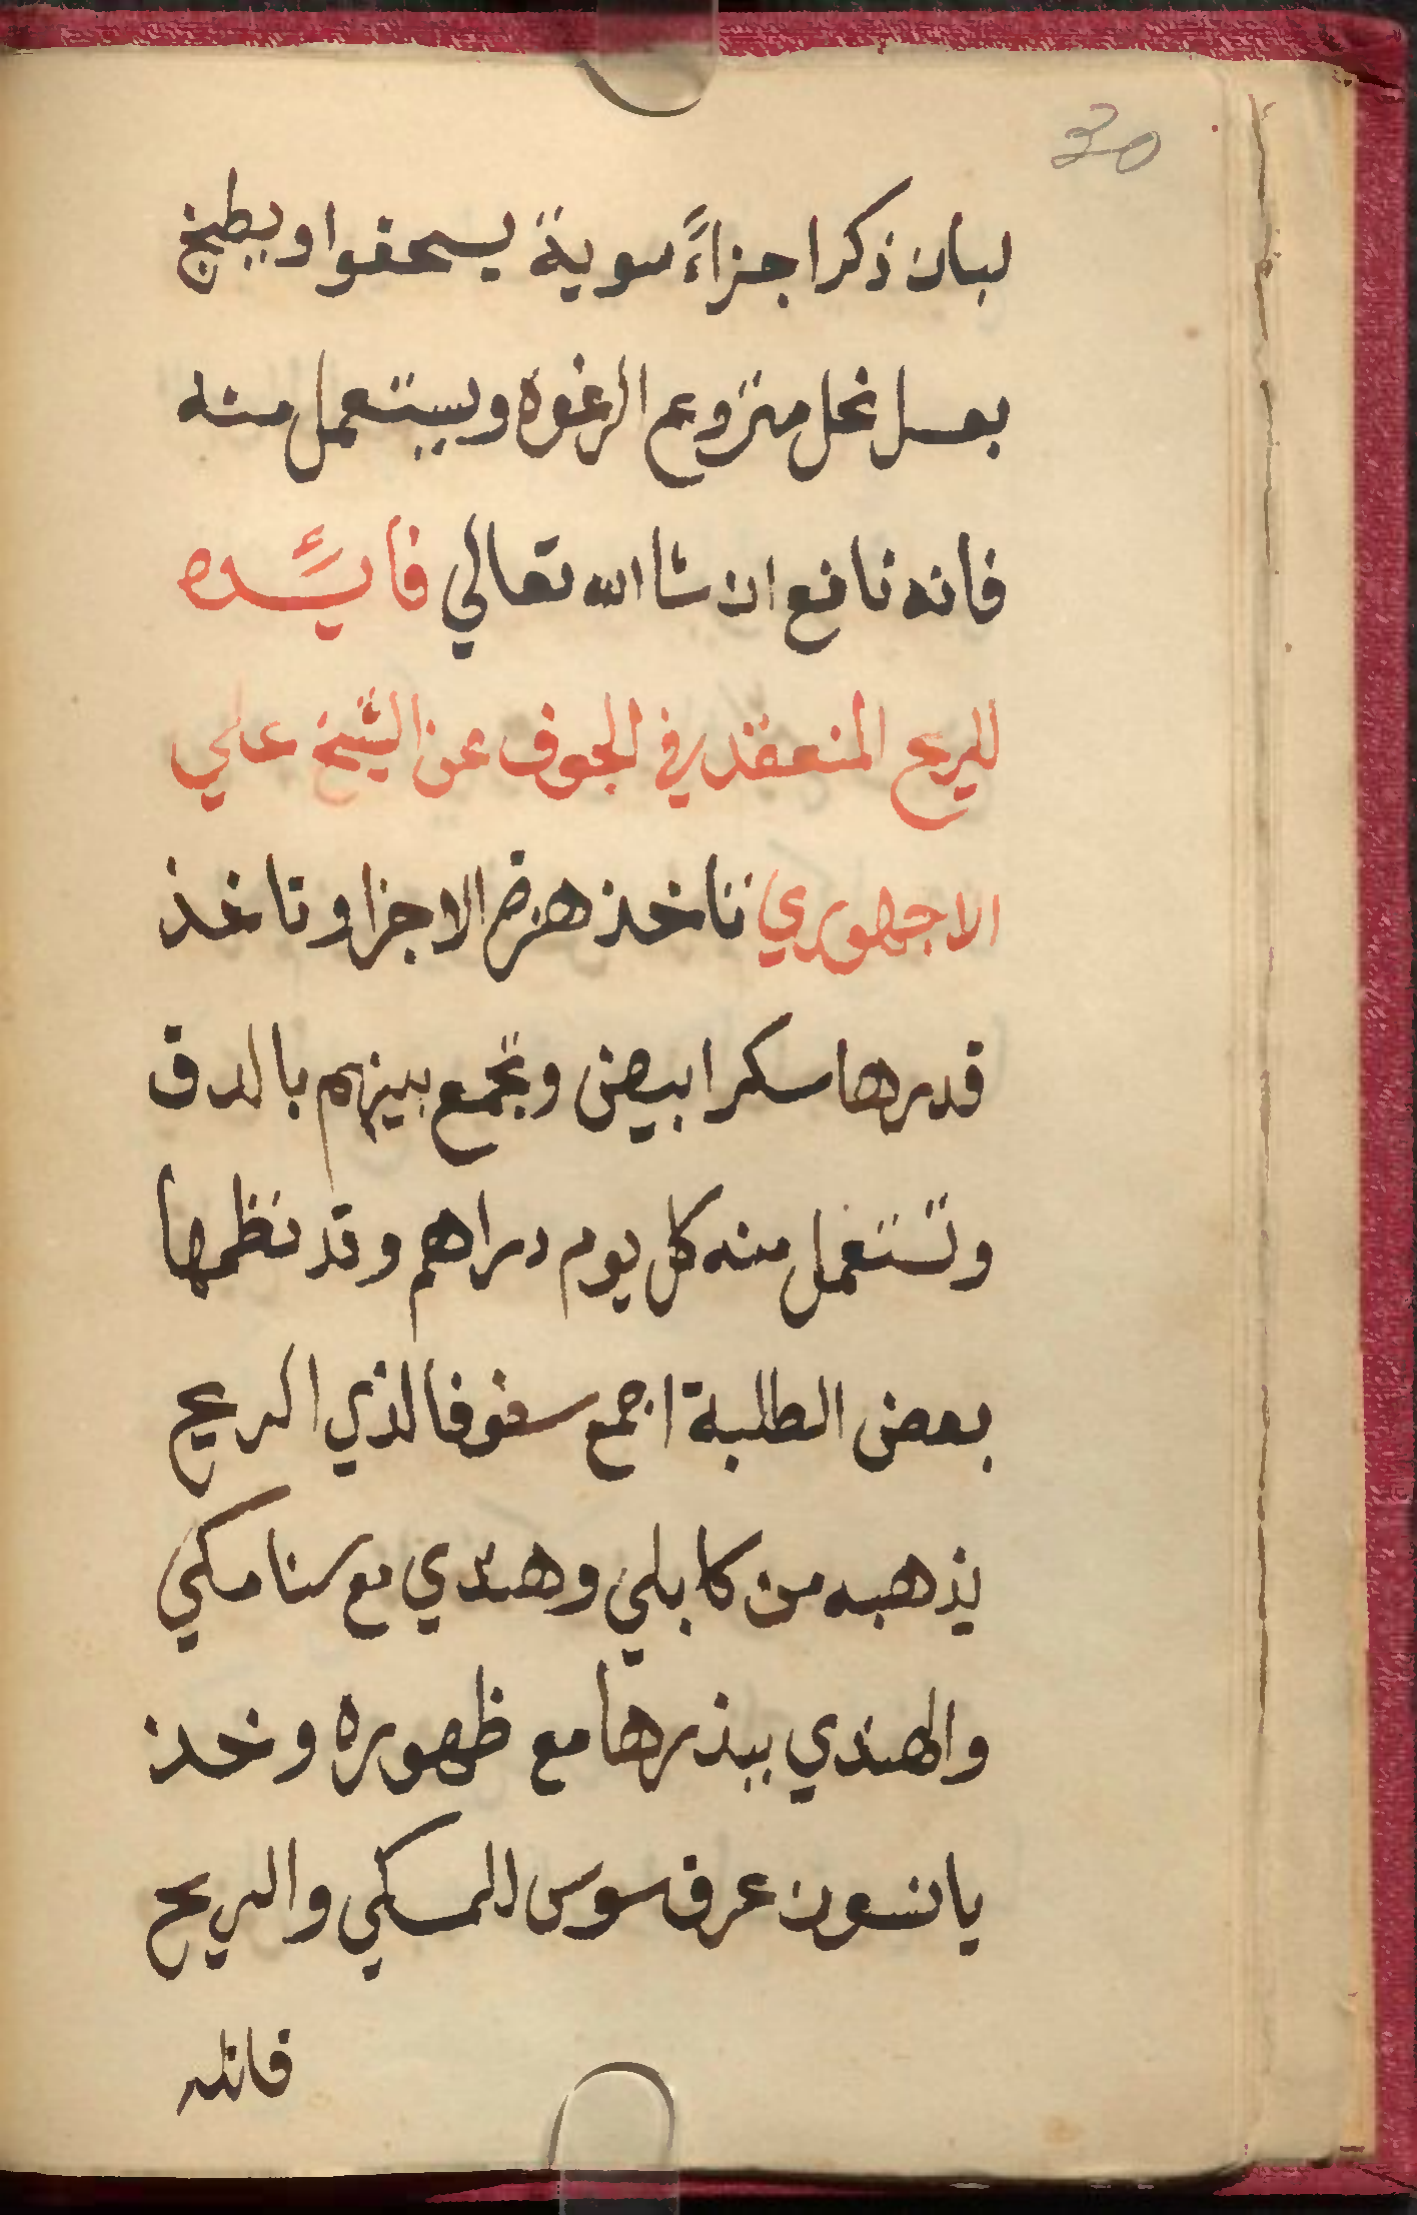 30
لبان ذكر اجزاءً سوية يسحقوا ويطبخ
بعسل نحل منزوع الرغوة ويستعمل منه
فانه نافع ان شا الله تعالي فايدة
للريح المنعقد في الجوف عن الشيخ علي
الاجهوري تاخذ هذه الاجزا وتاخذ
قدرها سكر ابيض وتجمع بينهم بالدق
وتستعمل منه كل يوم دراهم وقد نظمها
بعض الطلبة اجمع سفوفا لذي الريح
يذهبه من كابلي وهندي مع سنا مكي
والهندي ببذرها مع ظهوره وخذ
يانسون عرف سوس للمسكي والريح